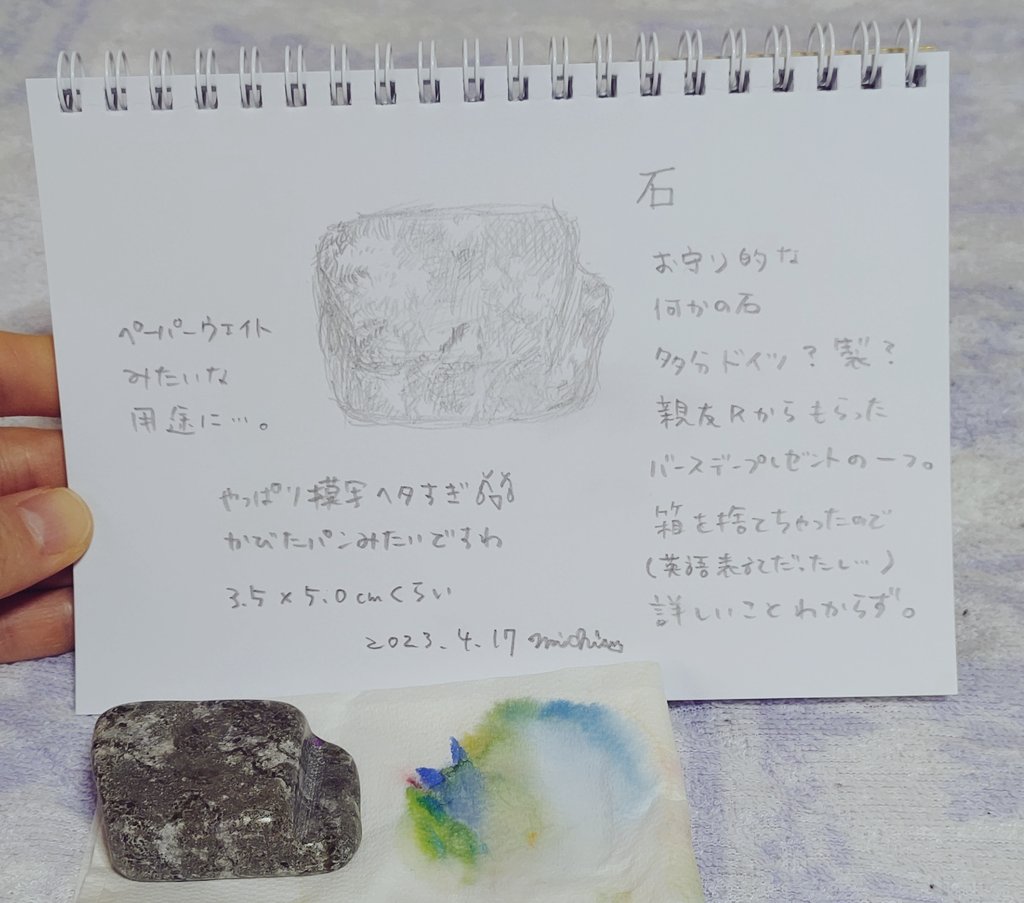 石
お守り的な
何かの石
多分ドイツ？製？
親友Rからもらった
バースデープレゼントの一つ。
箱を捨てちゃったので
(英語表記だったし…)
詳しいことわからず。
ペーパーウェイト
みたいな
用途に…。
やっぱり模写ヘタすぎ
かびたパンみたいですわ
3.5×5.0cmくらい
2023.4.17